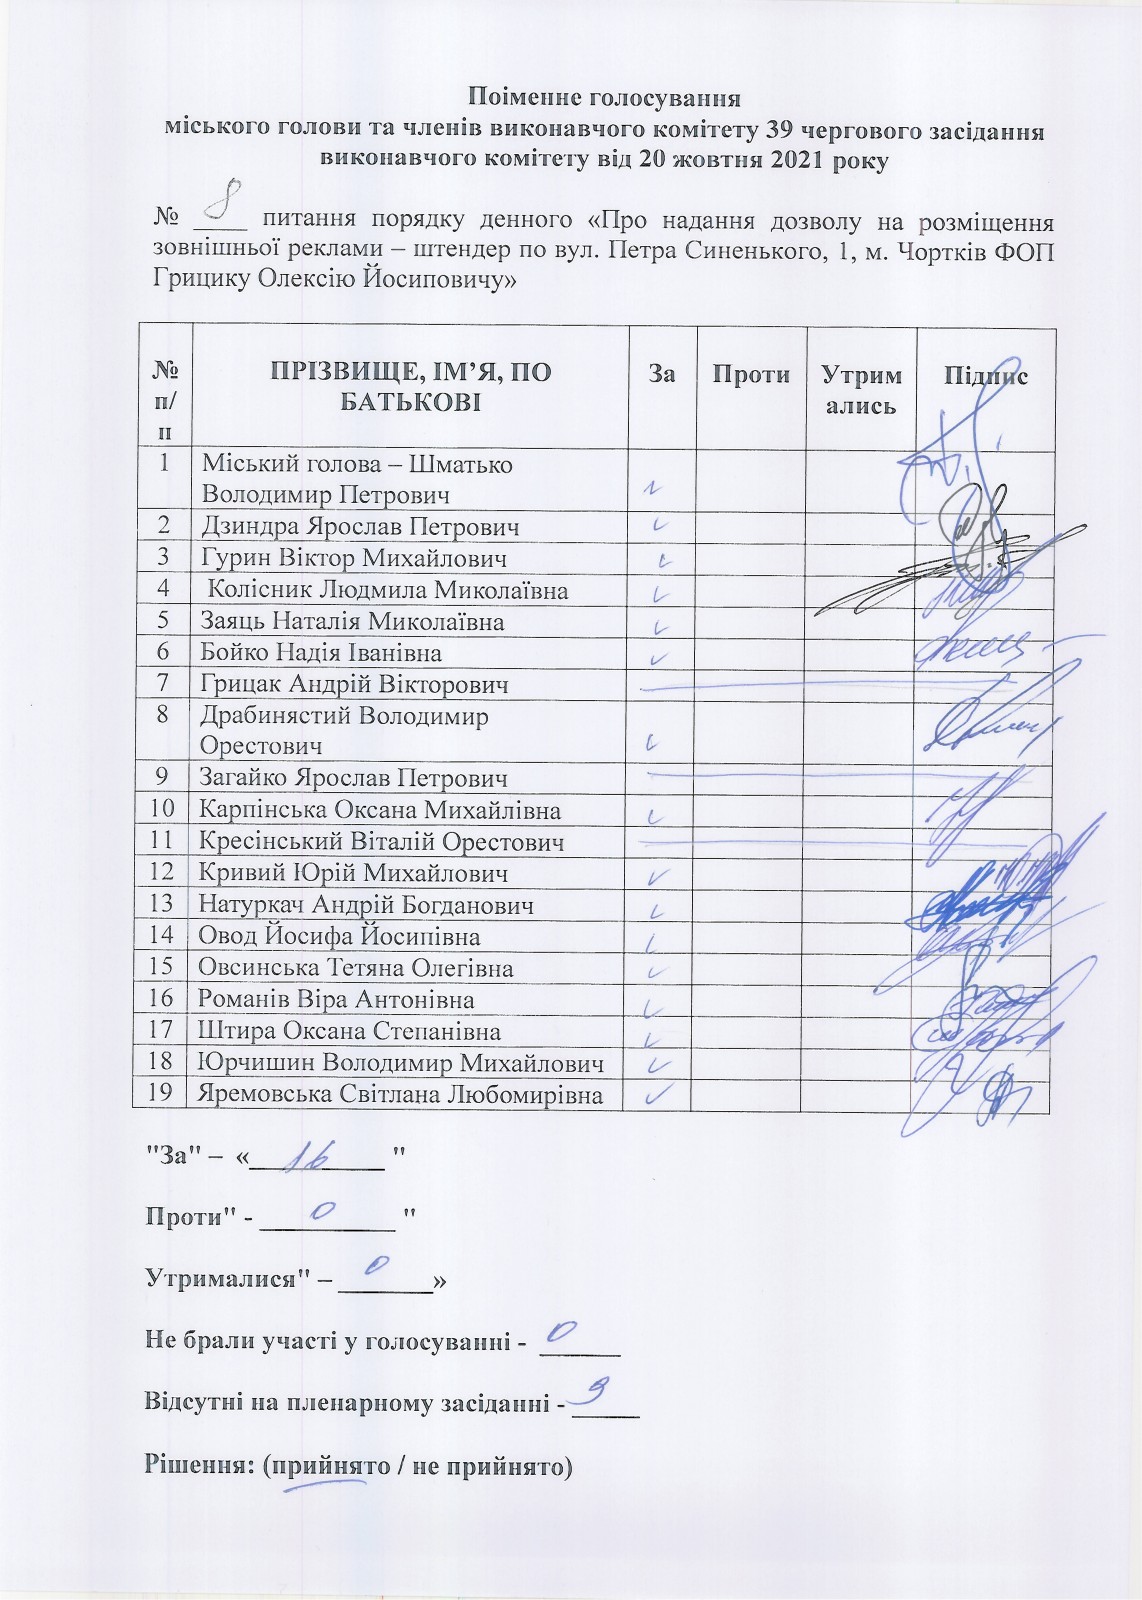 Поіменне голосування
міського голови та членів виконавчого комітету 39 чергового засідання
виконавчого комітету від 20 жовтня 2021 року
№ 8 питання порядку денного «Про надання дозволу на розміщення
зовнішньої реклами – штендер по вул. Петра Синенького, 1, м. Чортків ФОП
Грицику Олексію Йосиповичу»
№ п/п ПРІЗВИЩЕ, ІМ’Я, ПО БАТЬКОВІ За Проти Утримались Підпис
1 Міський голова – Шматько
Володимир Петрович
2 Дзиндра Ярослав Петрович
3 Гурин Віктор Михайлович
4 Колісник Людмила Миколаївна
5 Заяць Наталія Миколаївна
6 Бойко Надія Іванівна
7 Грицак Андрій Вікторович
8 Драбинястий Володимир
Орестович
9 Загайко Ярослав Петрович
10 Карпінська Оксана Михайлівна
11 Кресінський Віталій Орестович
12 Кривий Юрій Михайлович
13 Натуркач Андрій Богданович
14 Овод Йосифа Йосипівна
15 Овсинська Тетяна Олегівна
16 Романів Віра Антонівна
17 Штира Оксана Степанівна
18 Юрчишин Володимир Михайлович
19 Яремовська Світлана Любомирівна
"За" – «16 "
Проти" - 0 "
Утрималися" – 0»
Не брали участі у голосуванні - 0
Відсутні на пленарному засіданні - 3
Рішення: (прийнято / не прийнято)